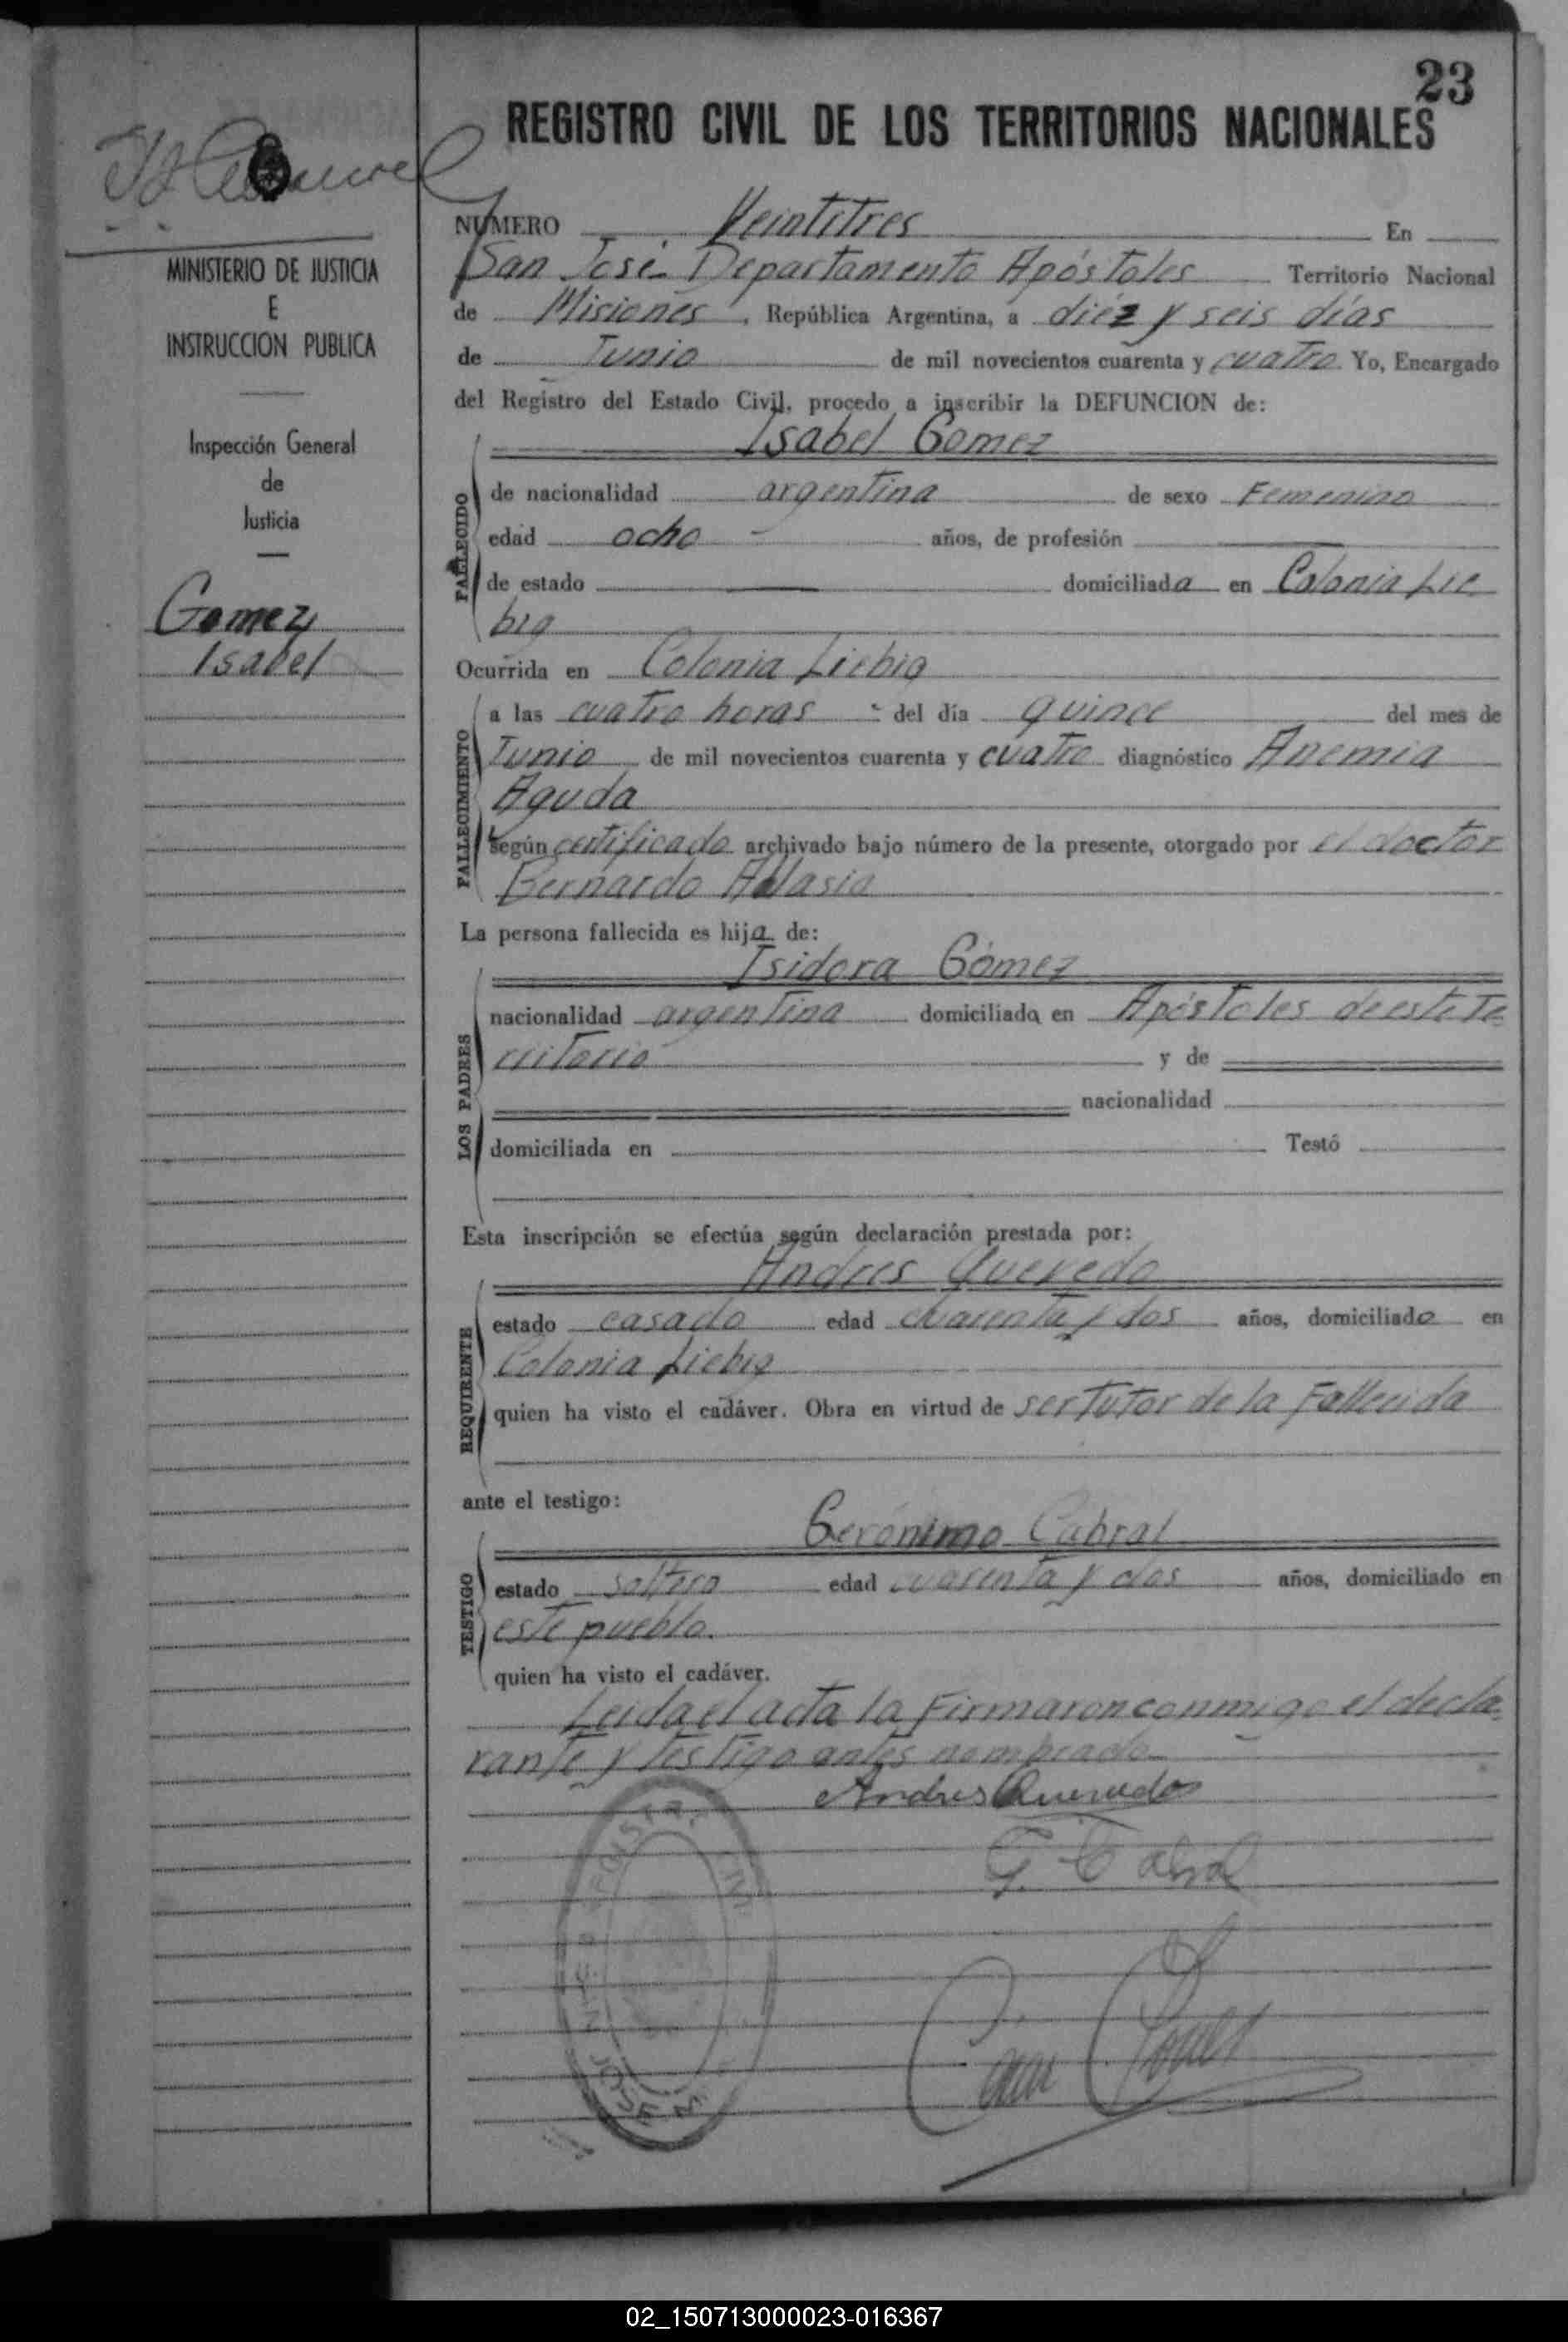 23
REGISTRO CIVIL DE LOS TERRITORIOS NACIONALES
MINISTERIO DE JUSTICIA
E
INSTRUCCION PUBLICA
Inspección General
de
Justicia
Gomez
Isabel
NUMERO Veintitres En
San José Departamento Apóstoles Territorio Nacional
de Misiones, República Argentina, a diéz y seis días
de Junio de mil novecientos cuarenta y cuatro Yo, Encargado
del Registro del Estado Civil, procedo a inscribir la DEFUNCION de:
Isabel Gomez
FALLECIDO
de nacionalidad argentina de sexo Femenino
edad ocho - años, de profesión
de estado domiciliada en Colonia Lie
big
Ocurrida en Colonia Liebig
FALLECIMIENTO
a las cuatro horas - del día quince del mes de
Junio de mil novecientos cuarenta y cuatro diagnóstico Anemia
Aguda
según certificado archivado bajo número de la presente, otorgado por el doctor
Bernardo
La persona fallecida es hija de:
Isidora Gómez
LOS PADRES
nacionalidad argentina domiciliada en Apóstoles de este Te
rritorio y de
nacionalidad
domiciliada en Testó
Esta inscripción se efectúa según declaración prestada por:
Andres Quevedo
REQUIRENTE
estado casado edad cuarenta y dos años, domiciliado en
Colonia Liebig
quien ha visto el cadáver. Obra en virtud de ser Tutor de la Fallecida
ante el testigo:
Gerónimo Cabral
TESTIGO
estado soltero edad cuarenta y dos años, domiciliado en
este pueblo.
quien ha visto el cadáver.
Leida el acta la Firmaron conmigo el decla-
rante y testigo antes nombrado
Andres Quevedo
G. Cabral
02_150713000023-016367